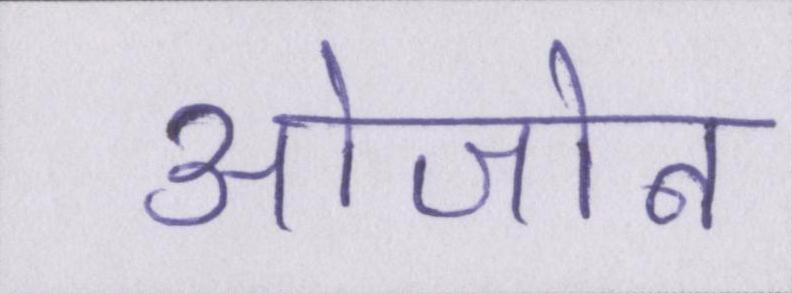 ओजोन